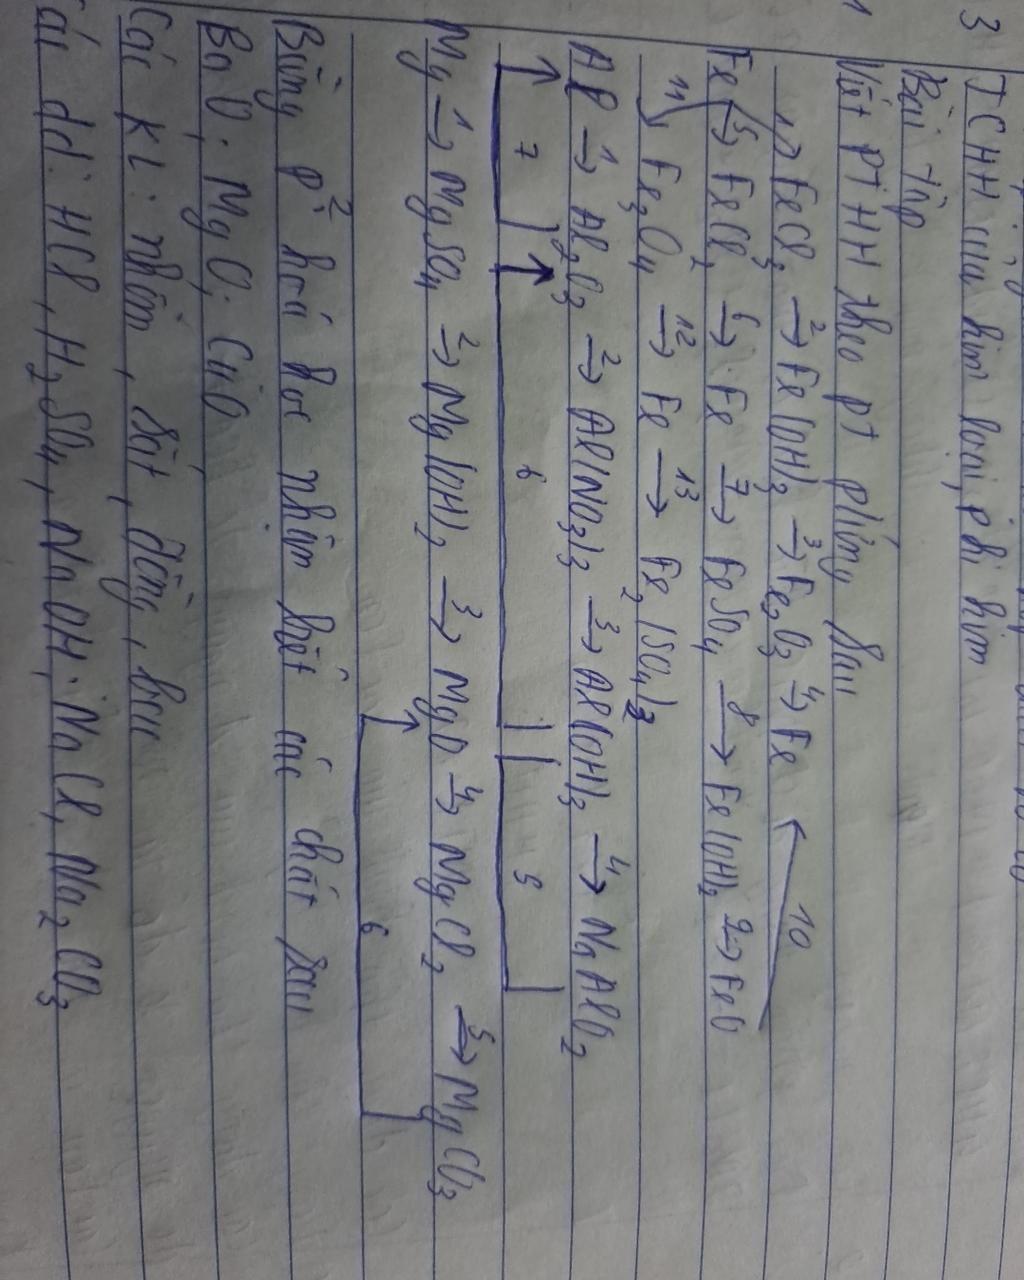 3 TCHH của kim loại, phi kim
Bài tập
Viết PTHH theo pt phứng sau
1→ FeCl3 2→ Fe(OH)3 3→ Fe2O3 4→ Fe
10
Fe 5→ FeCl2 6→ Fe 7→ FeSO4 8→ Fe(OH)2 9→ FeO
11 Fe3O4 12→ Fe 13→ Fe2(SO4)3
Al 1→ Al2O3 2→ Al(NO3)3 3→ Al(OH)3 4→ NaAlO2
7 6 5
Mg 1→ MgSO4 2→ Mg(OH)2 3→ MgO 4→ MgCl2 5→ MgCO3
6
Bằng p2 hoá học nhận biết các chất sau
BaO, MgO, CuO
Các KL: nhôm, sắt, đồng, bạc
Các dd: HCl, H2SO4, NaOH, NaCl, Na2CO3